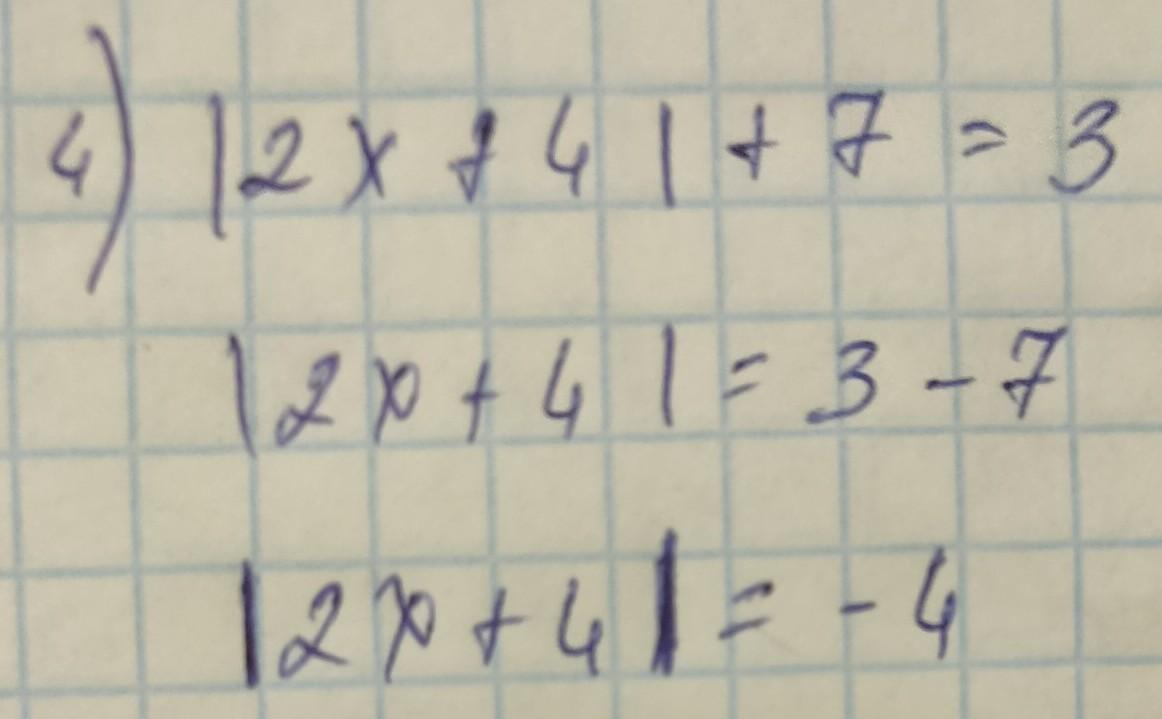 4) |2x + 4| + 7 = 3
|2x + 4| = 3 - 7
|2x + 4| = - 4